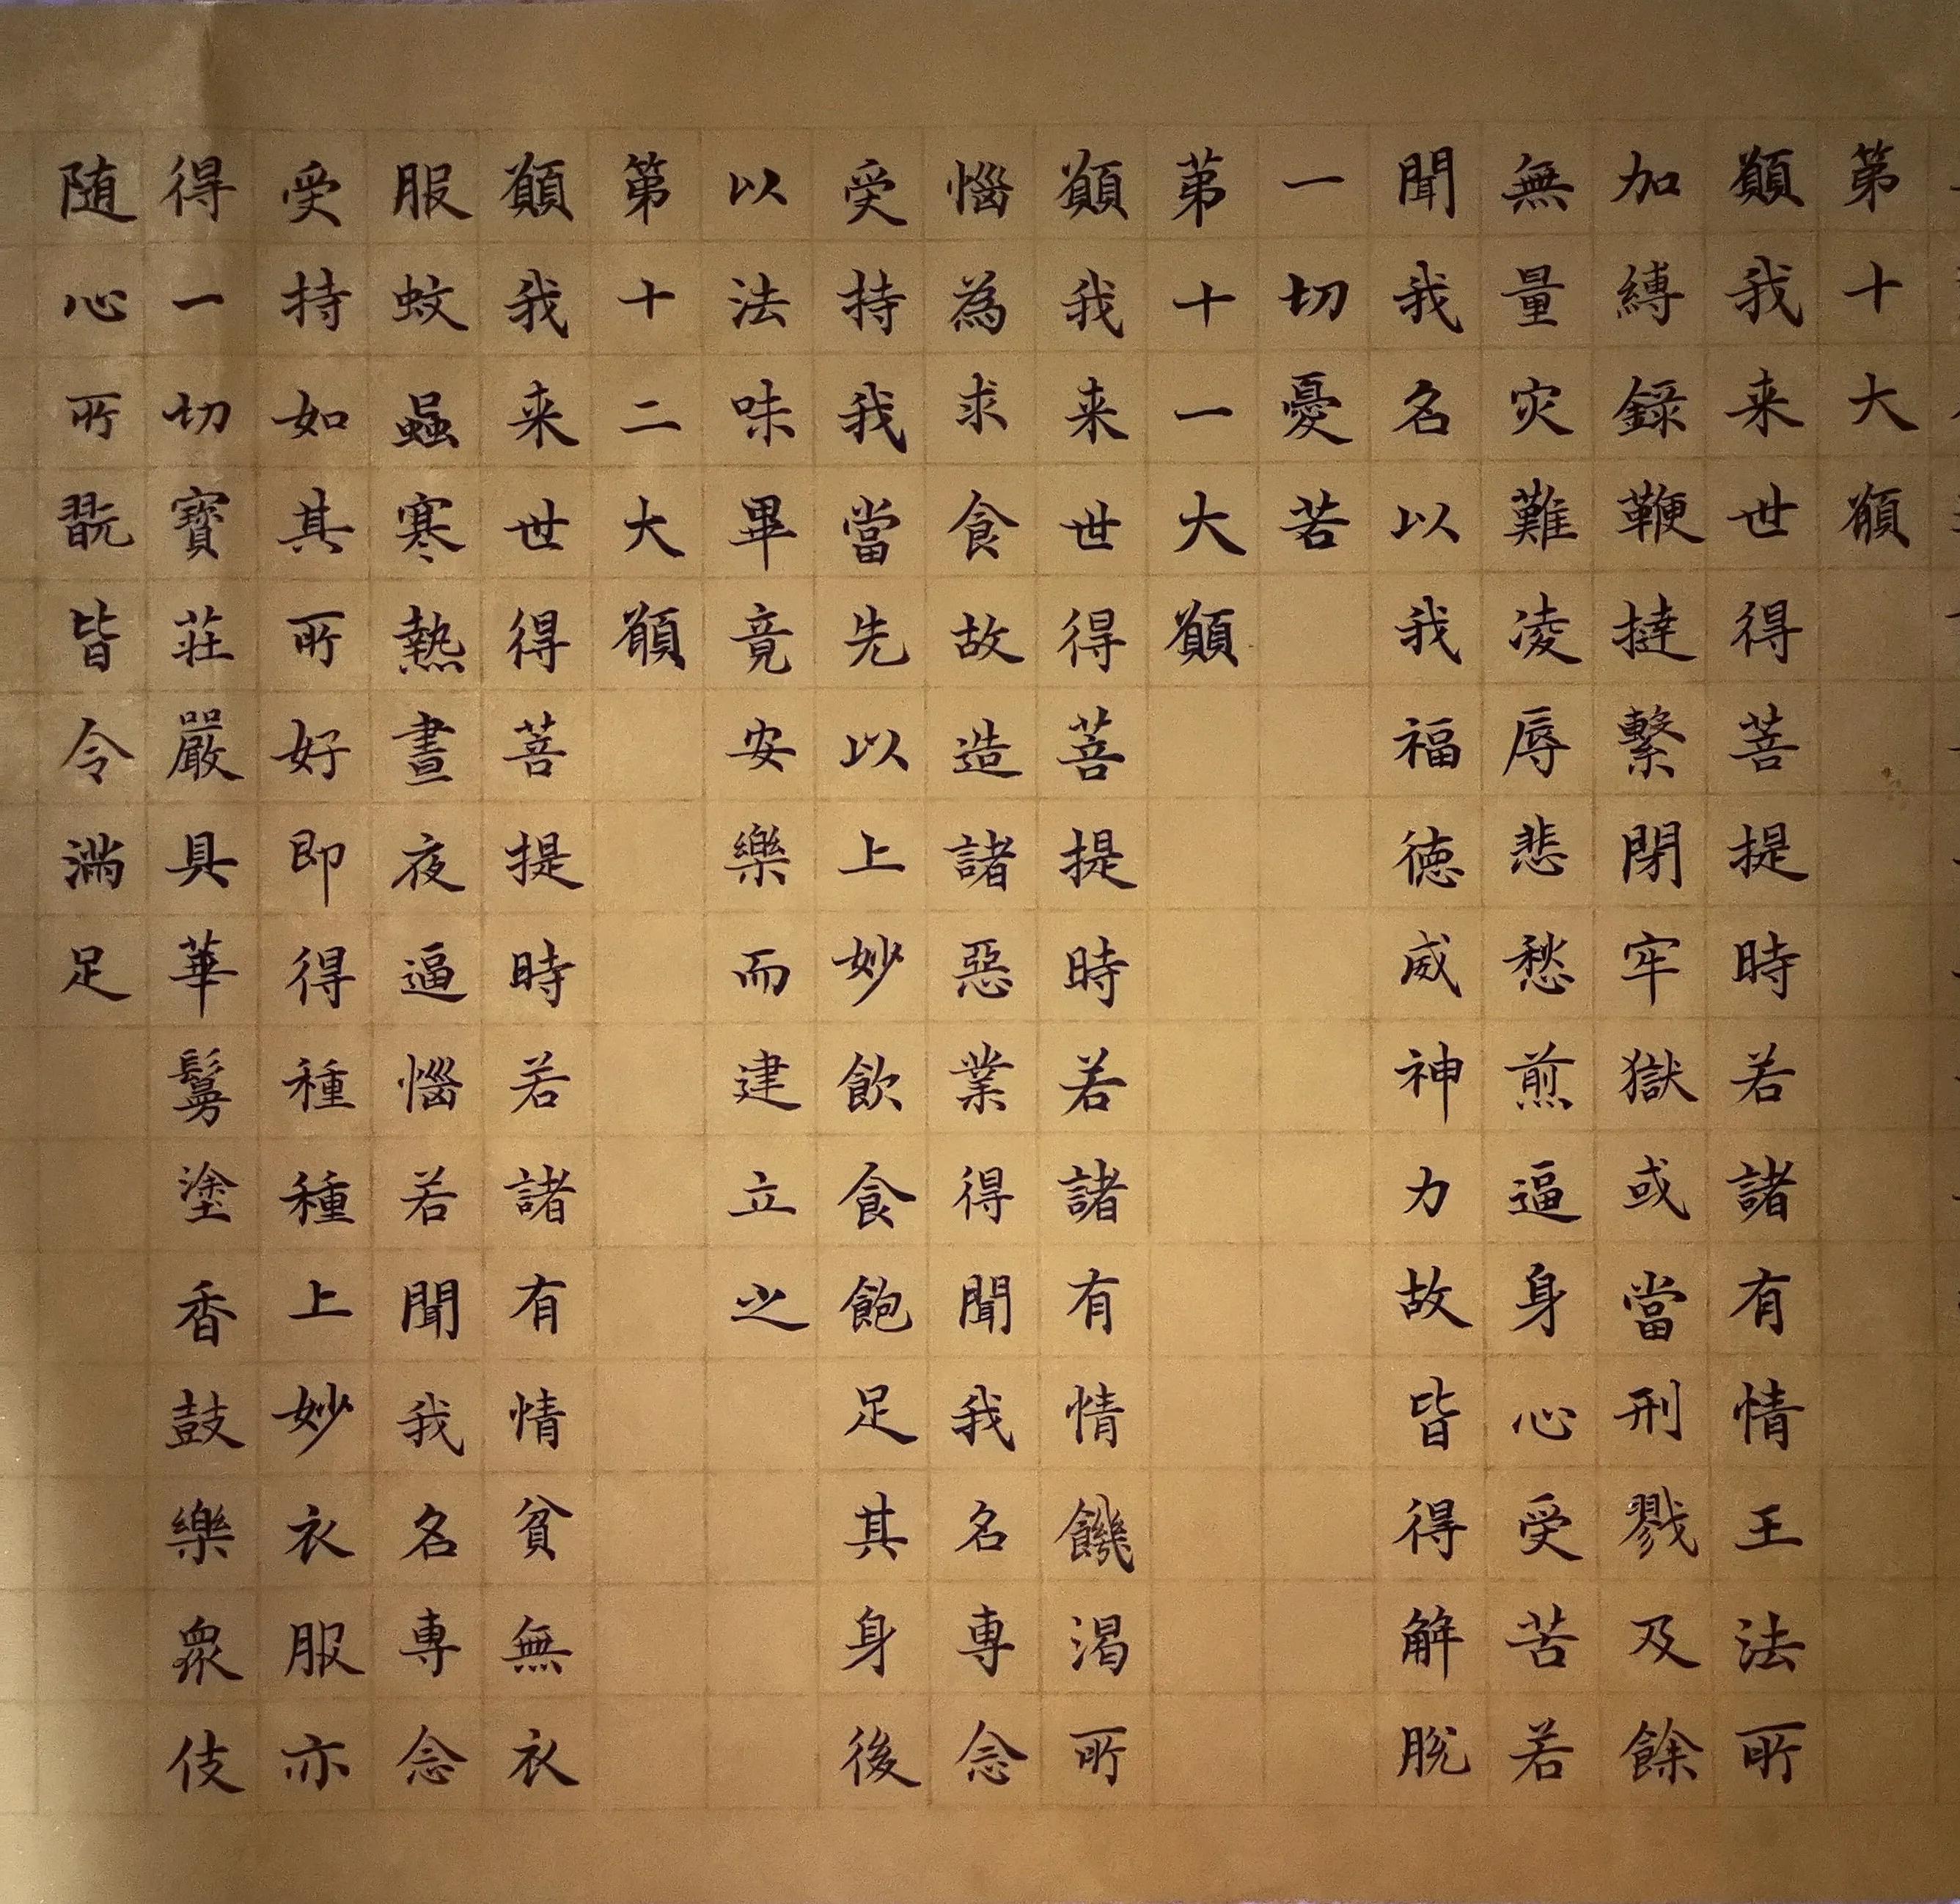 第十大願
願我来世得菩提時若諸有情王法所
加縛錄鞭撻繫閉牢獄或當刑戮及餘
無量灾難凌辱悲愁煎逼身心受苦若
聞我名以我福德威神力故皆得解脫
一切憂苦
第十一大願
願我来世得菩提時若諸有情饑渴所
惱為求食故造諸惡業得聞我名專念
受持我當先以上妙飲食飽足其身後
以法味畢竟安樂而建立之
第十二大願
願我来世得菩提時若諸有情貧無衣
服蚊蝱寒熱晝夜逼惱若聞我名專念
受持如其所好即得種種上妙衣服亦
得一切寶莊嚴具華鬘塗香鼓樂衆伎
随心所翫皆令滿足